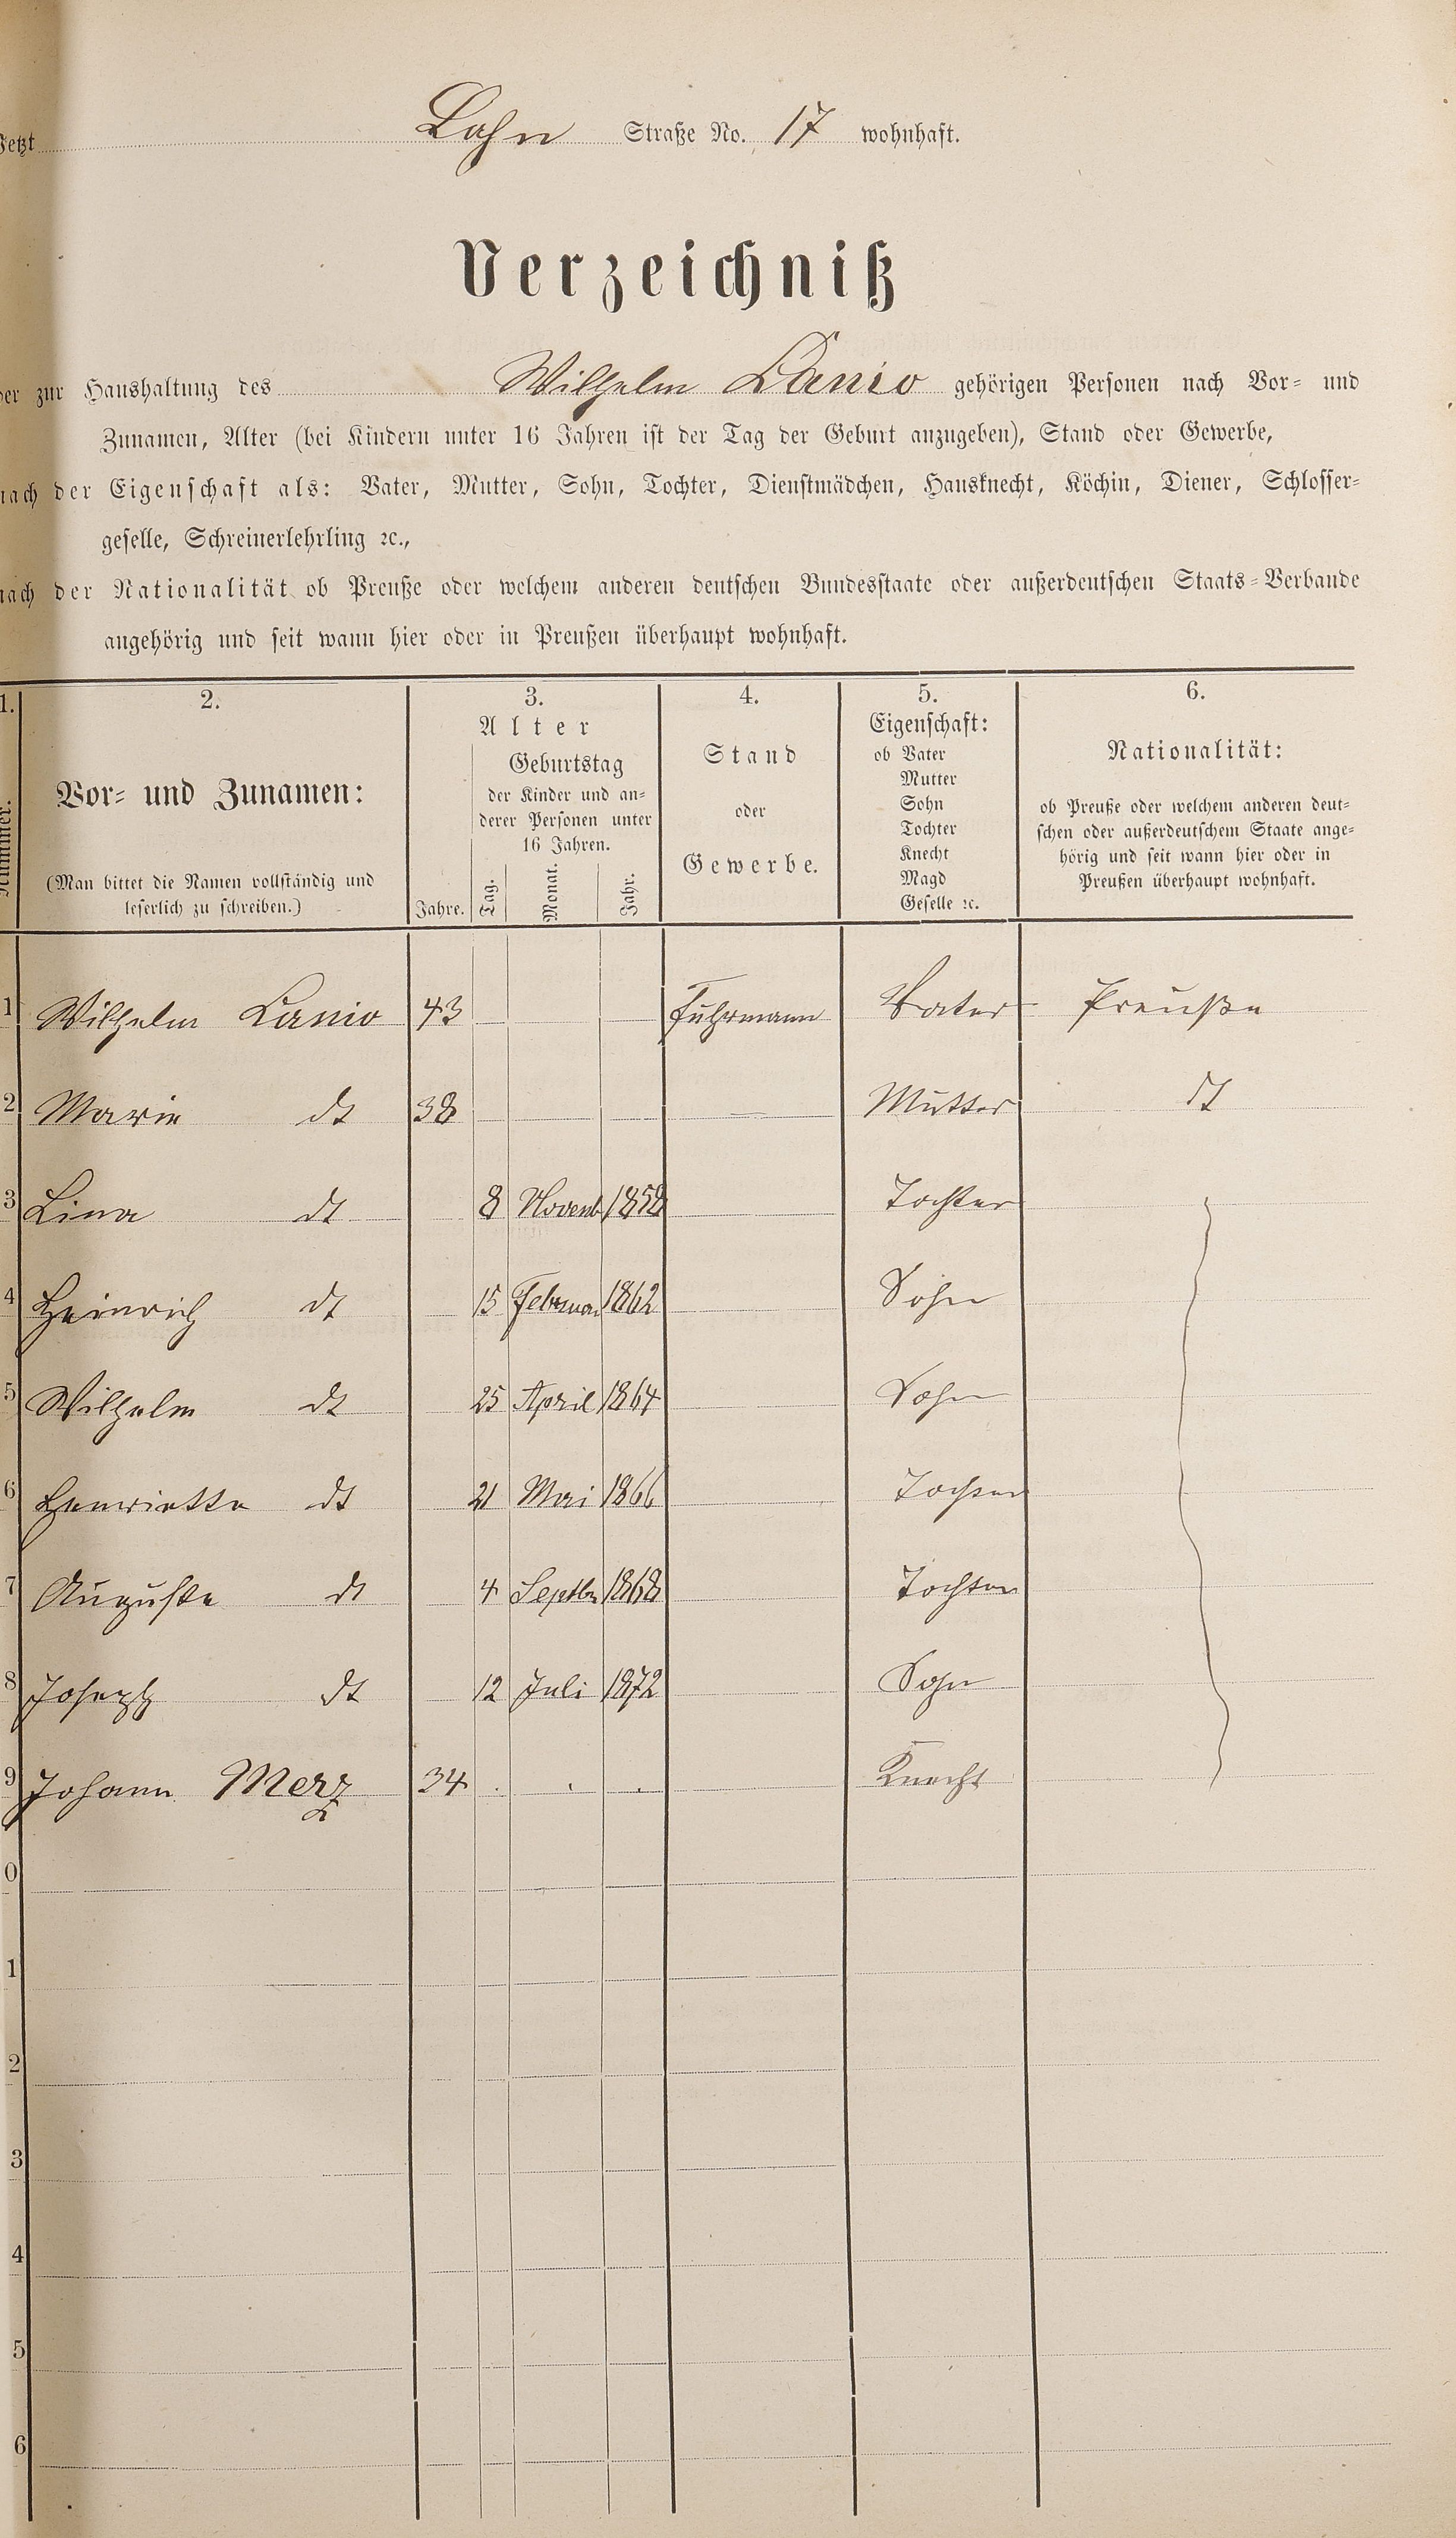 Jetzt Lahn Straße No. 17 wohnhaft.
Verzeichniß
der zur Haushaltung des Wilhelm Lanio gehörigen Personen nach Vor- und
Zunamen, Alter (bei Kindern unter 16 Jahren ist der Tag der Geburt anzugeben), Stand oder Gewerbe,
nach der Eigenschaft als: Vater, Mutter, Sohn, Tochter, Dienstmädchen, Hausknecht, Köchin, Diener, Schlosser-
geselle, Schreinerlehrling ꝛc.,
nach der Nationalität ob Preuße oder welchem anderen deutschen Bundesstaate oder außerdeutschen Staats-Verbande
angehörig und seit wann hier oder in Preußen überhaupt wohnhaft.
1. 2. 3. 4. 5. 6.
Nummer.
Vor- und Zunamen:
(Man bittet die Namen vollständig und
leserlich zu schreiben.)
Alter
Jahre.
Geburtstag
der Kinder und an-
derer Personen unter
16 Jahren.
Tag. Monat. Jahr.
Stand
oder
Gewerbe.
Eigenschaft:
ob Vater
Mutter
Sohn
Tochter
Knecht
Magd
Geselle ꝛc.
Nationalität:
ob Preuße oder welchem anderen deut-
schen oder außerdeutschem Staate ange-
hörig und seit wann hier oder in
Preußen überhaupt wohnhaft.
1 Wilhelm Lanio 43 Fuhrmann Vater Preuße
2 Marie dt 38 — Mutter dt
3 Lina dt 8 Novemb 1858 Tochter
4 Heinrich dt 15 Februar 1862 Sohn
5 Wilhelm dt 25 April 1864 Sohn
6 Henriette dt 21 Mai 1866 Tochter
7 Auguste dt 4 Septbr 1868 Tochter
8 Joseph dt 12 Juli 1872 Sohn
9 Johann Merz 34 . . . Knecht
0
1
2
3
4
5
6